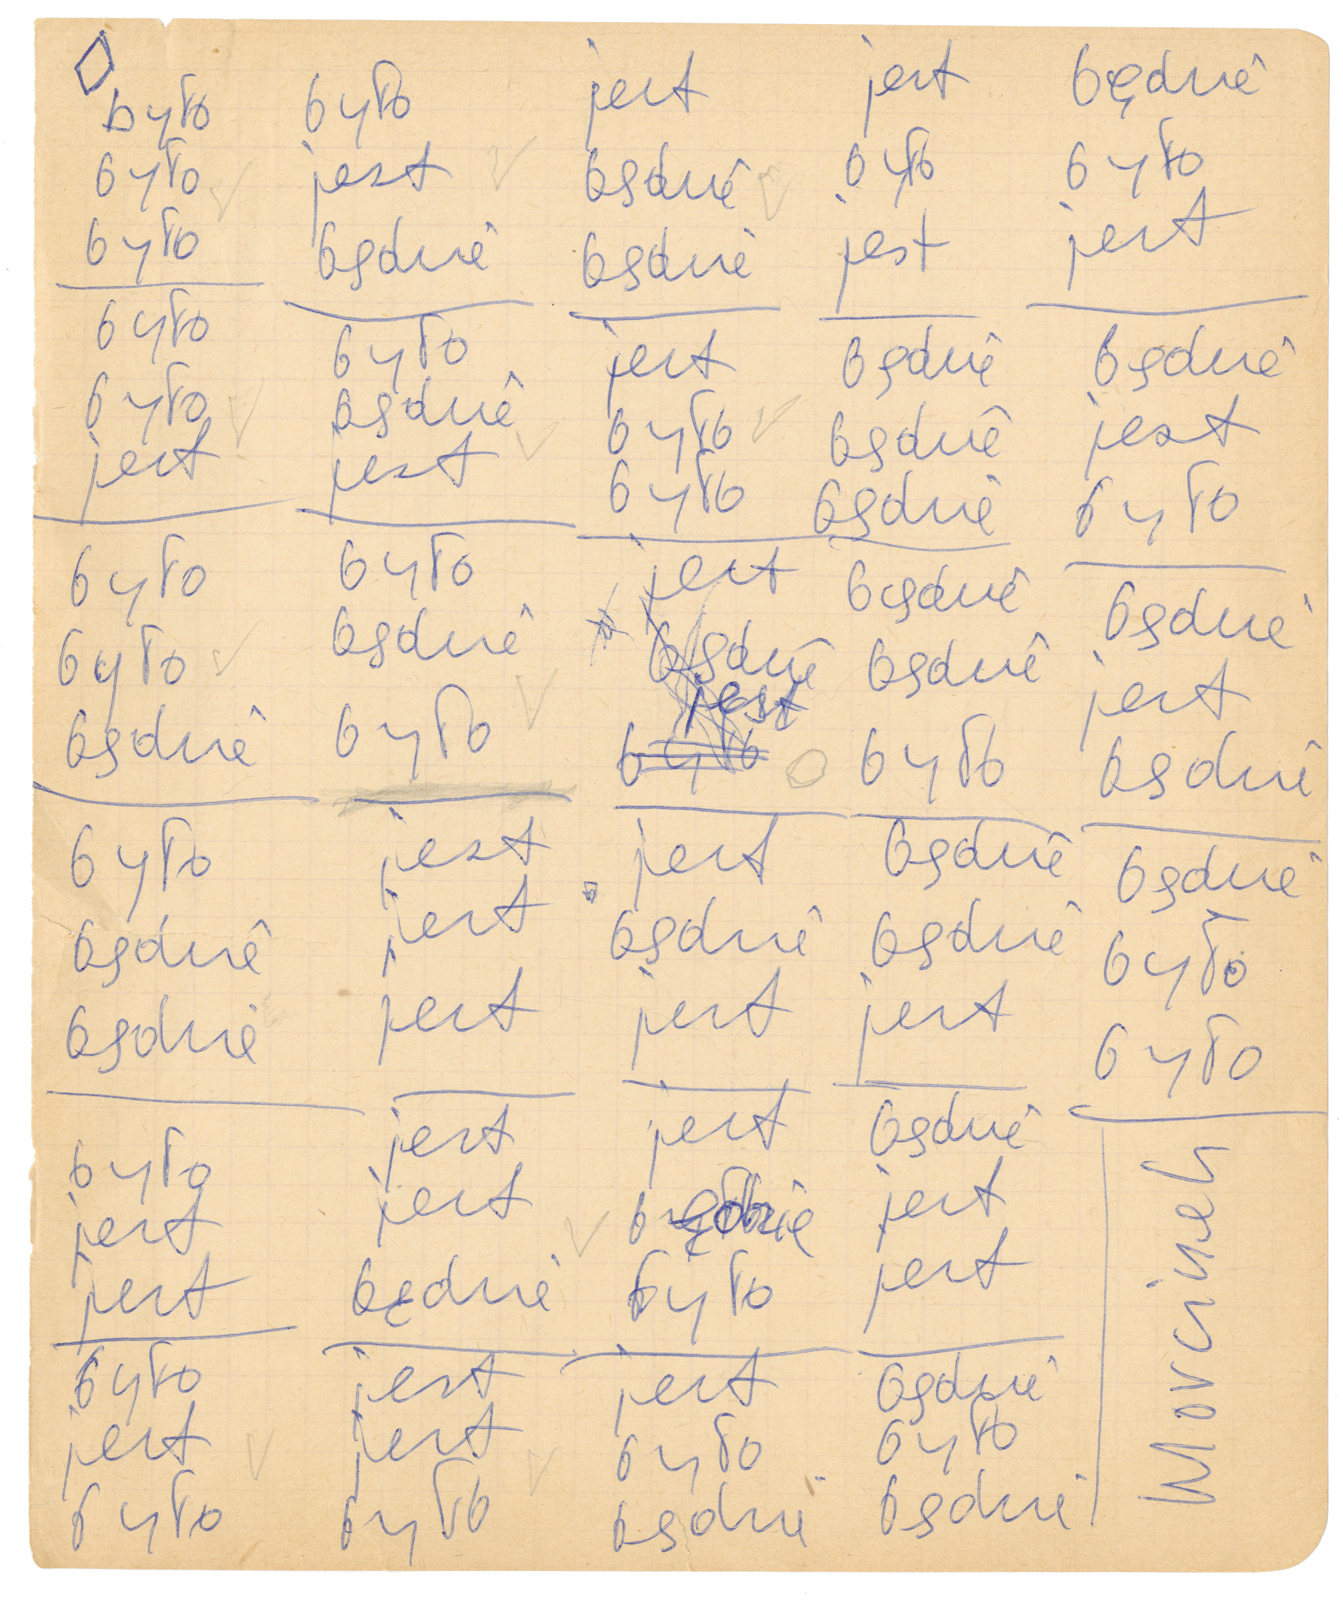 było
było
było
było
było
jest
było
było
będzie
było
będzie
będzie
było
jest
jest
było
jest
było
było
jest
będzie
było
będzie
jest
było
będzie
było
jest
jest
jest
jest
jest
będzie
jest
jest
było
jest
będzie
będzie
jest
było
było
jest
będzie
jest
było
jest
będzie
jest
jest
będzie
było
jest
było
będzie
jest
było
jest
będzie
będzie
będzie
będzie
będzie
było
będzie
będzie
jest
będzie
jest
jest
będzie
było
będzie
będzie
było
jest
będzie
jest
było
będzie
jest
będzie
będzie
było
było
Morcinek